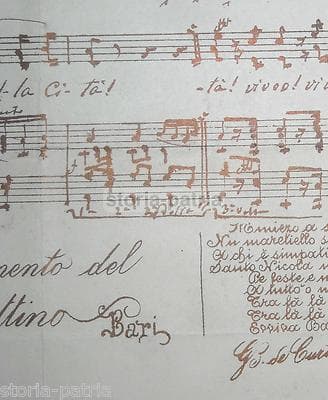 -la Ci-tà! -tà! vivoo! viv
storia-patria
1ª 2ª 3ª volta
mento del
ttino
Bari
Mmiezo a s
Nu martiello
A chi è simpati
Santo Nicola
Pe feste e
A tutto
Tra là là
Tra là là
Evviva Ba
G. de Cur
storia-patria